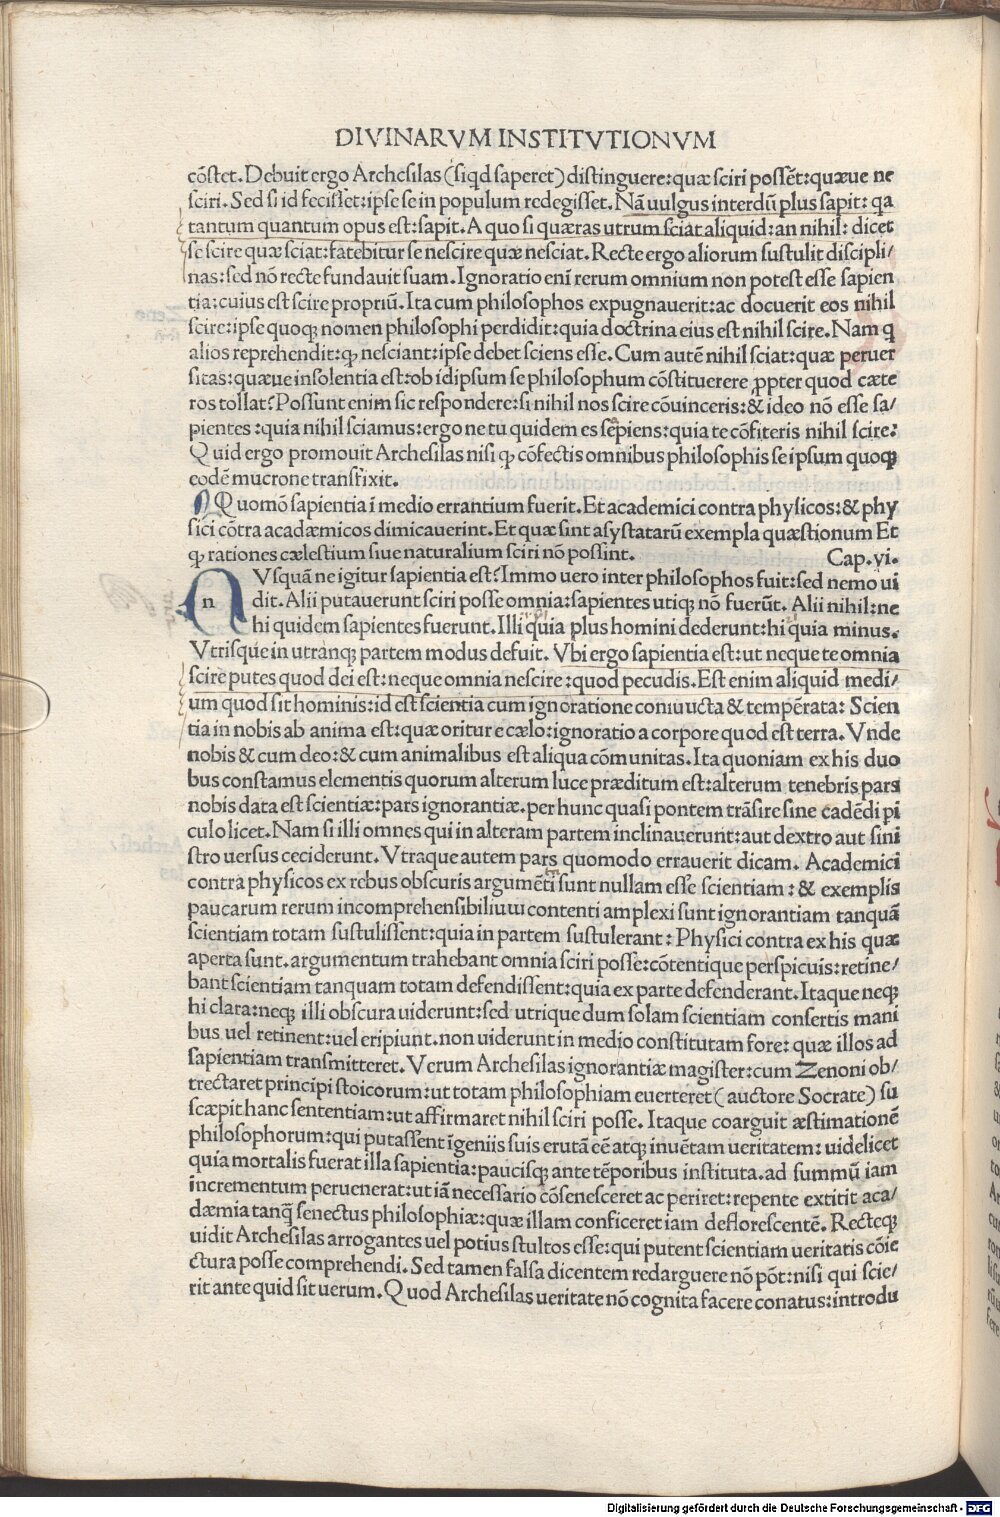 DIVINARVM INSTITVTIONVM
cōstet. Debuit ergo Archesilas (siqd saperet) distinguere: quæ sciri possēt: quæue ne
sciri. Sed si id fecisset: ipse se in populum redegisset. Nā uulgus interdū plus sapit: qa
tantum quantum opus est: sapit. A quo si quæras utrum sciat aliquid: an nihil: dicet
se scire quæ sciat: fatebitur se nescire quæ nesciat. Recte ergo aliorum sustulit discipli/
nas: sed nō recte fundauit suam. Ignoratio enī rerum omnium non potest esse sapien
tia: cuius est scire propriū. Ita cum philosophos expugnauerit: ac docuerit eos nihil
scire: ipse quoq; nomen philosophi perdidit: quia doctrina eius est nihil scire. Nam q
alios reprehendit: q; nesciant: ipse debet sciens esse. Cum autē nihil sciat: quæ peruer
sitas: quæue insolentia est: ob id ipsum se philosophum cōstituerere ꝓpter quod cæte
ros tollat? Possunt enim sic respondere: si nihil nos scire cōuinceris: & ideo nō esse sa/
pientes: quia nihil sciamus: ergo ne tu quidem es sepiens: quia te cōfiteris nihil scire?
Quid ergo promouit Archesilas nisi q; cōfectis omnibus philosophis se ipsum quoq;
eodē mucrone transfixit.
Quomō sapientia ī medio errantium fuerit. Et academici contra physicos: & phy
sici cōtra acadæmicos dimicauerint. Et quæ sint asystatarū exempla quæstionum Et
q; rationes cælestium siue naturalium sciri nō possint. Cap. vi.
n Vsquā ne igitur sapientia est? Immo uero inter philosophos fuit: sed nemo ui
dit. Alii putauerunt sciri posse omnia: sapientes utiq; nō fuerūt. Alii nihil: ne
hi quidem sapientes fuerunt. Illi quia plus homini dederunt: hi quia minus.
Vtrisque in utranq; partem modus defuit. Vbi ergo sapientia est: ut neque te omnia
scire putes quod dei est: neque omnia nescire: quod pecudis. Est enim aliquid medi/
um quod sit hominis: id est scientia cum ignoratione coniuucta & tempērata: Scien
tia in nobis ab anima est: quæ oritur e cælo: ignoratio a corpore quod est terra. Vnde
nobis & cum deo: & cum animalibus est aliqua cōmunitas. Ita quoniam ex his duo
bus constamus elementis quorum alterum luce præditum est: alterum tenebris pars
nobis data est scientiæ: pars ignorantiæ. per hunc quasi pontem trāsire sine cadēdi pi
culo licet. Nam si illi omnes qui in alteram partem inclinauerunt: aut dextro aut sini
stro uersus ceciderunt. Vtraque autem pars quomodo errauerit dicam. Academici
contra physicos ex rebus obscuris argumēti sunt nullam esse scientiam: & exemplis
paucarum rerum incomprehensibilium contenti amplexi sunt ignorantiam tanquā
scientiam totam sustulissent: quia in partem sustulerant: Physici contra ex his quæ
aperta sunt. argumentum trahebant omnia sciri posse: cōtentique perspicuis: retine/
bant scientiam tanquam totam defendissent: quia ex parte defenderant. Itaque neq;
hi clara: neq; illi obscura uiderunt: sed utrique dum solam scientiam consertis mani
bus uel retinent: uel eripiunt. non uiderunt in medio constitutam fore: quæ illos ad
sapientiam transmitteret. Verum Archesilas ignorantiæ magister: cum Zenoni ob/
trectaret principi stoicorum: ut totam philosophiam euerteret (auctore Socrate) su
scæpit hanc sententiam: ut affirmaret nihil sciri posse. Itaque coarguit æstimationē
philosophorum: qui putassent īgeniis suis erutā eē atq; inuētam ueritatem: uidelicet
quia mortalis fuerat illa sapientia: paucisq; ante tēporibus instituta. ad summū iam
incrementum peruenerat: ut iā necessario cōsenesceret ac periret: repente extitit aca/
dæmia tanq̄ senectus philosophiæ: quæ illam conficeret iam deflorescentē. Recteq;
uidit Archesilas arrogantes uel potius stultos esse: qui putent scientiam ueritatis cōie
ctura posse comprehendi. Sed tamen falsa dicentem redarguere nō pōt: nisi qui scie/
rit ante quid sit uerum. Quod Archesilas ueritate nō cognita facere conatus: introdu
Digitalisierung gefördert durch die Deutsche Forschungsgemeinschaft - DFG